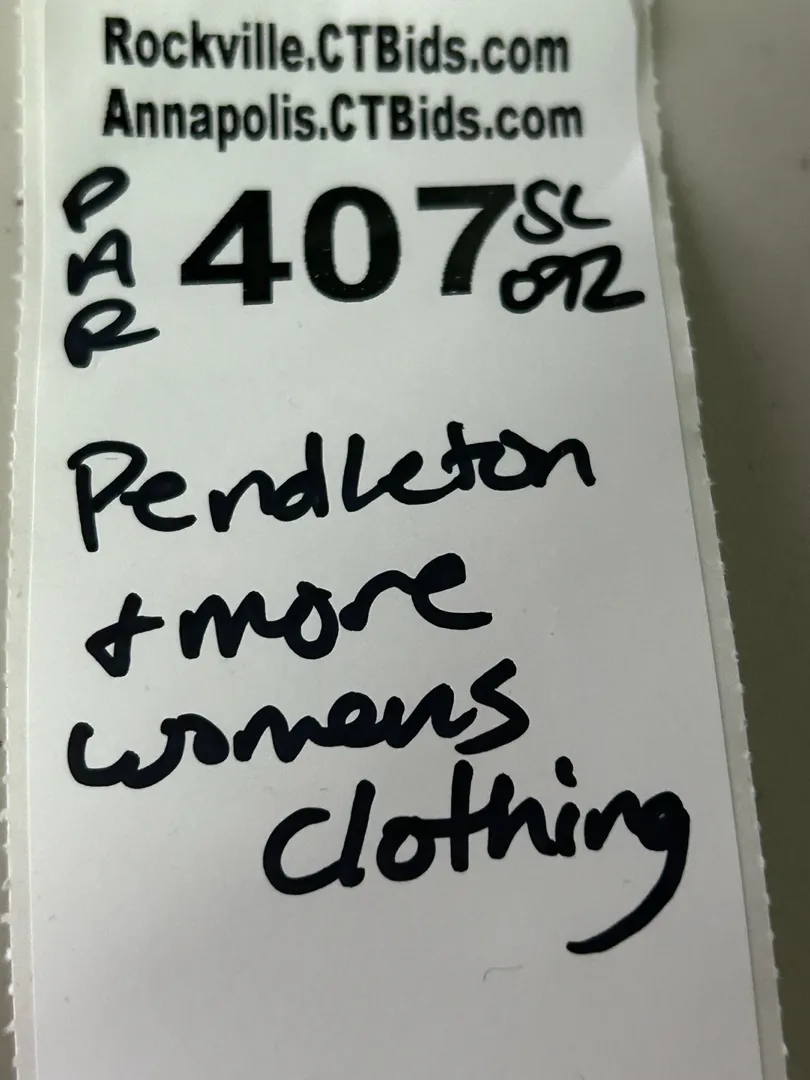 Rockville.CTBids.com
Annapolis.CTBids.com
PAR 407 SL 092
Pendleton
+ more
womens
Clothing